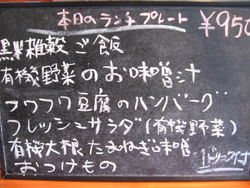 本日のランチプレート ¥950
黒米雑穀ご飯
有機野菜のお味噌汁
フワフワ豆腐のハンバーグ
フレッシュサラダ(有機野菜)
有機大根たまねぎ味噌
おつけもの
1ドリンク付